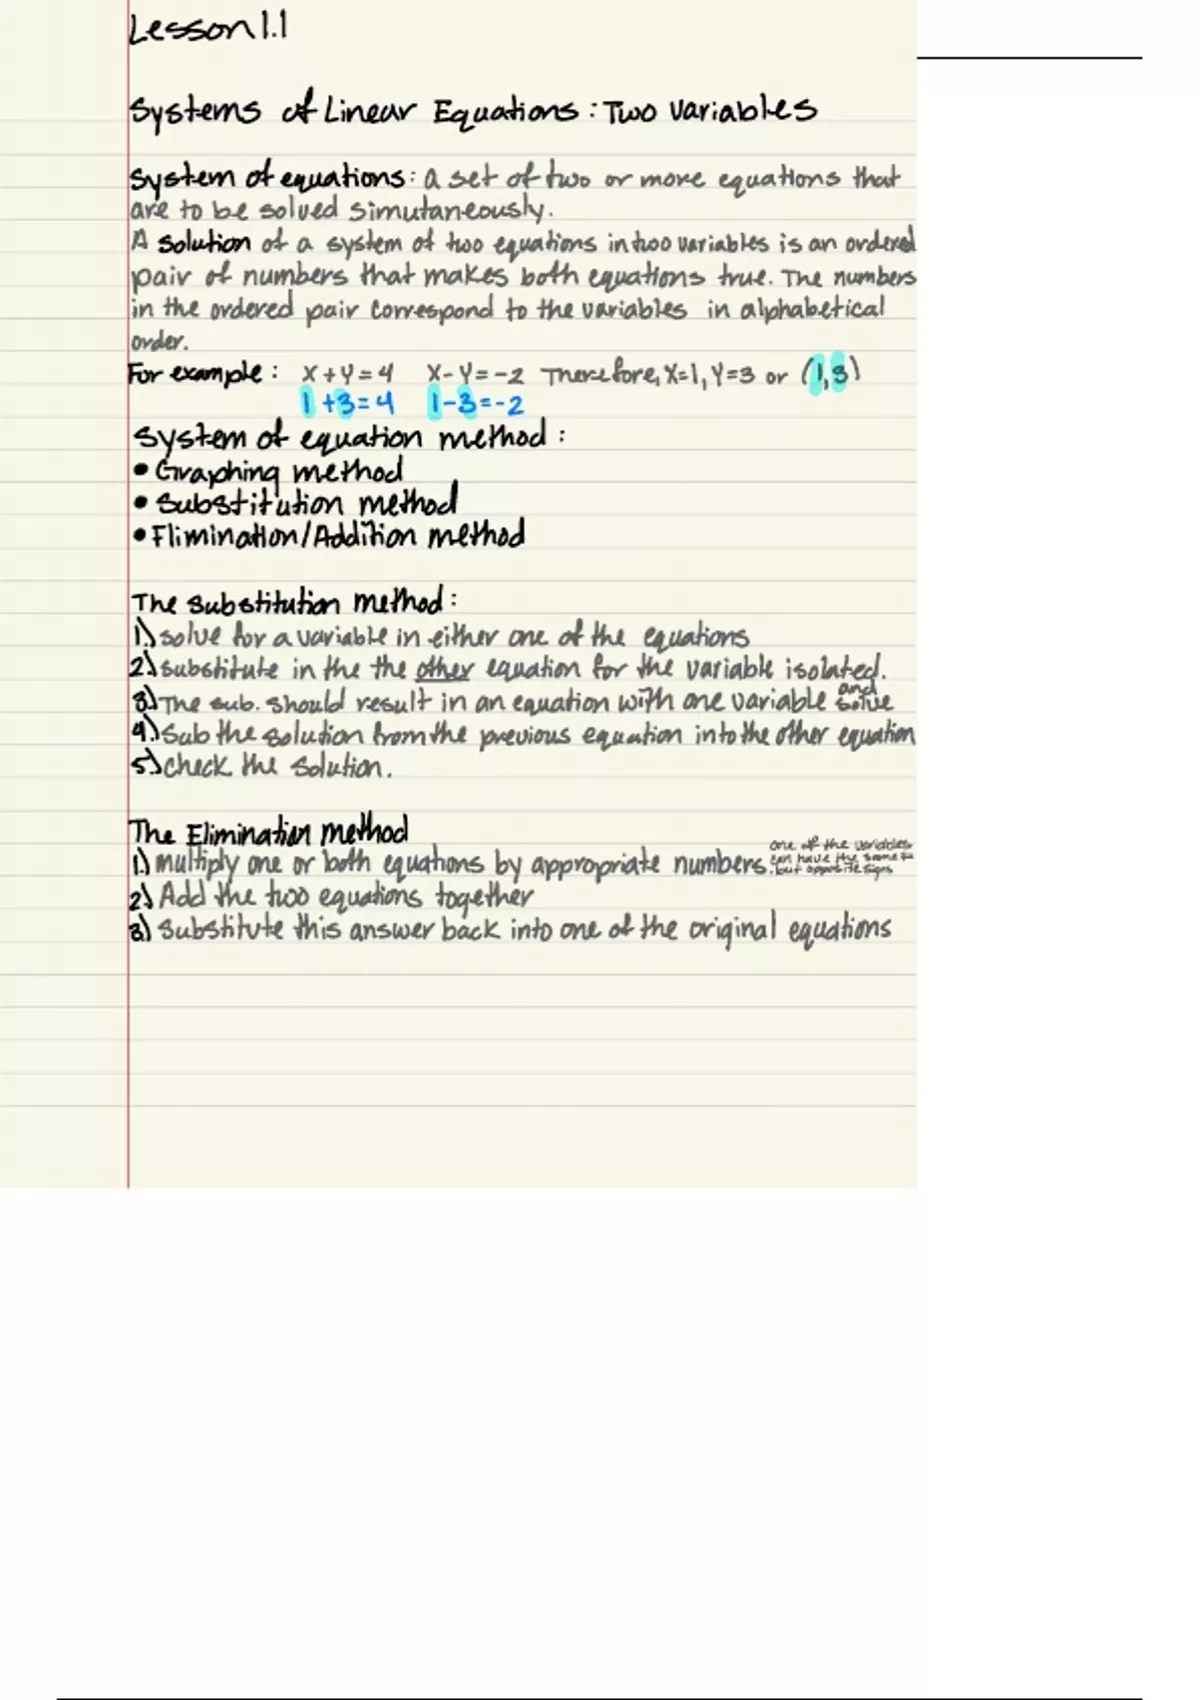 Lesson 1.1
Systems of Linear Equations: Two Variables
System of equations: a set of two or more equations that
are to be solved simutaneously.
A solution of a system of two equations in two variables is an ordered
pair of numbers that makes both equations true. The numbers
in the ordered pair correspond to the variables in alphabetical
order.
For example: X+Y=4 X-Y=-2 Therefore, X=1, Y=3 or (1,3)
1+3=4 1-3=-2
System of equation method:
• Graphing method
• Substitution method
• Elimination/Addition method
The substitution method:
1.) solve for a variable in either one of the equations
2.) substitute in the the other equation for the variable isolated.
3.) The sub. should result in an equation with one variable and solve
4.) Sub the solution from the previous equation into the other equation
5.) check the solution.
The Elimination method
1.) multiply one or both equations by appropriate numbers. one of the variables can have the same # but opposite signs
2.) Add the two equations together
3.) Substitute this answer back into one of the original equations